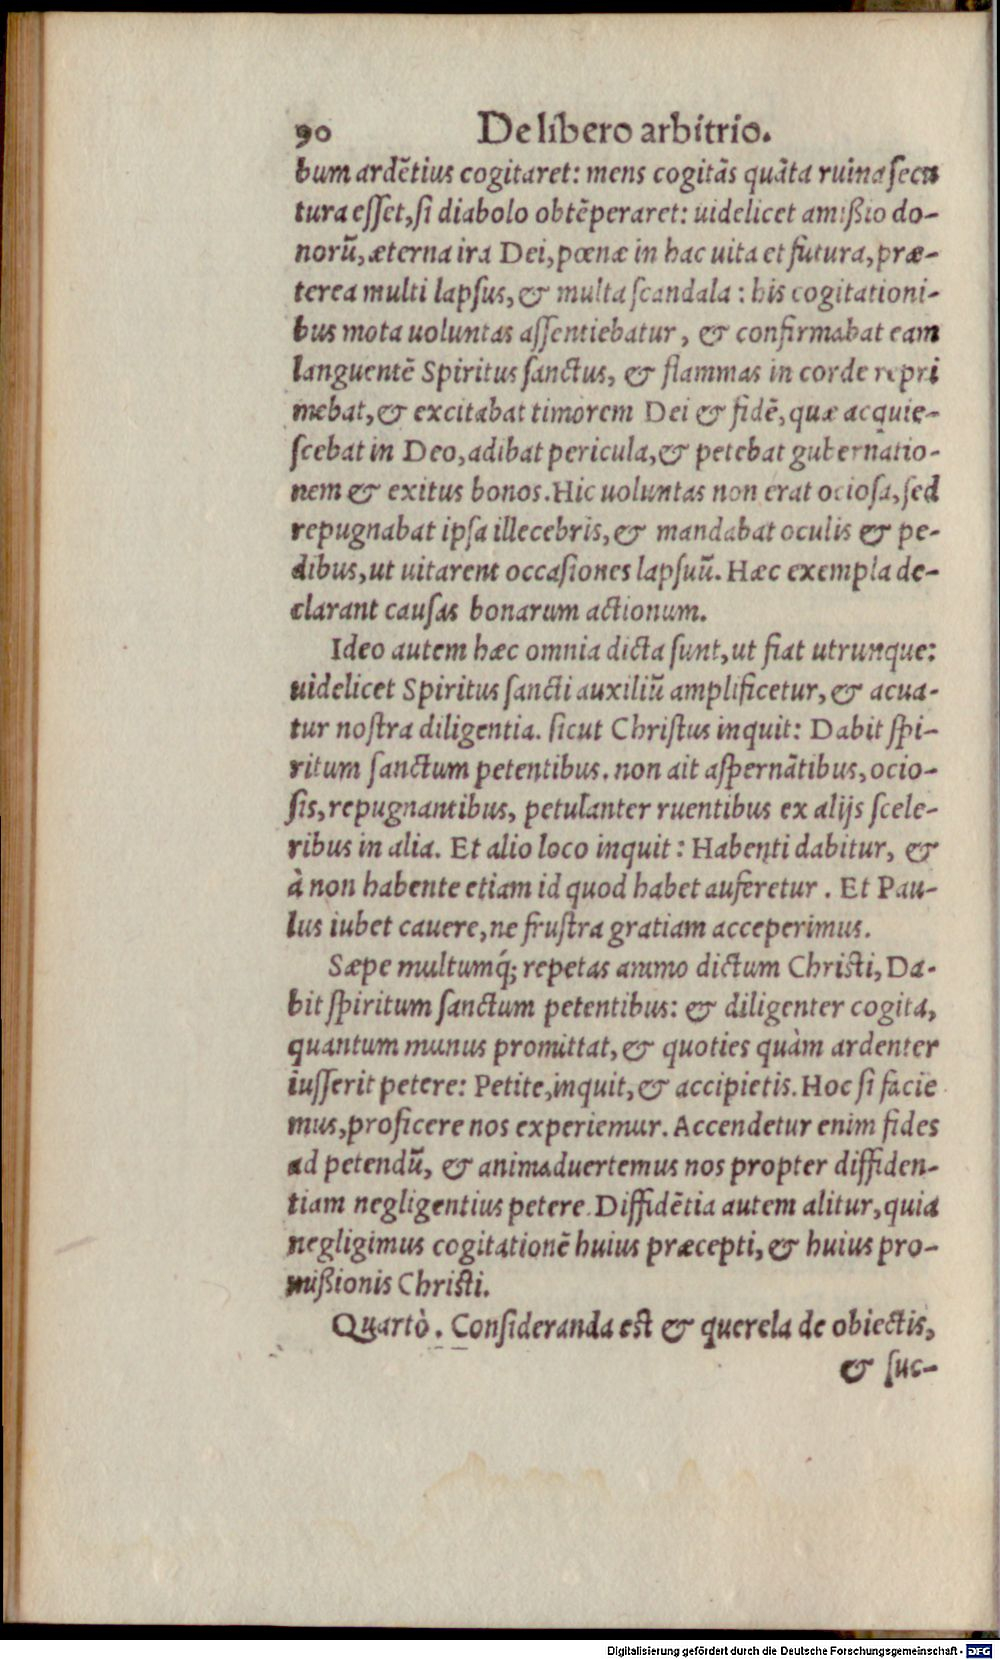 90 De libero arbitrio.
bum ardẽtius cogitaret: mens cogitãs quãta ruina secu
tura esset, si diabolo obtẽperaret: uidelicet amißio do-
norũ, æterna ira Dei, pœnæ in hac uita et futura, præ-
terea multi lapsus, & multa scandala : his cogitationi-
bus mota uoluntas assentiebatur, & confirmabat eam
languentẽ Spiritus sanctus, & flammas in corde repri
mebat, & excitabat timorem Dei & fidẽ, quæ acquie-
scebat in Deo, adibat pericula, & petebat gubernatio-
nem & exitus bonos. Hic uoluntas non erat ociosa, sed
repugnabat ipsa illecebris, & mandabat oculis & pe-
dibus, ut uitarent occasiones lapsuũ. Hæc exempla de-
clarant causas bonarum actionum.
Ideo autem hæc omnia dicta sunt, ut fiat utrunque:
uidelicet Spiritus sancti auxiliũ amplificetur, & acua-
tur nostra diligentia. sicut Christus inquit: Dabit spi-
ritum sanctum petentibus. non ait aspernãtibus, ocio-
sis, repugnantibus, petulanter ruentibus ex alijs scele-
ribus in alia. Et alio loco inquit : Habenti dabitur, &
à non habente etiam id quod habet auferetur . Et Pau-
lus iubet cauere, ne frustra gratiam acceperimus.
Sæpe multumq́; repetas animo dictum Christi, Da-
bit spiritum sanctum petentibus: & diligenter cogita,
quantum munus promittat, & quoties quàm ardenter
iusserit petere: Petite, inquit, & accipietis. Hoc si facie
mus, proficere nos experiemur. Accendetur enim fides
ad petendũ, & animaduertemus nos propter diffiden-
tiam negligentius petere. Diffidẽtia autem alitur, quia
negligimus cogitationẽ huius præcepti, & huius pro-
mißionis Christi.
Quartò. Consideranda est & querela de obiectis,
& suc-
Digitalisierung gefördert durch die Deutsche Forschungsgemeinschaft - DFG